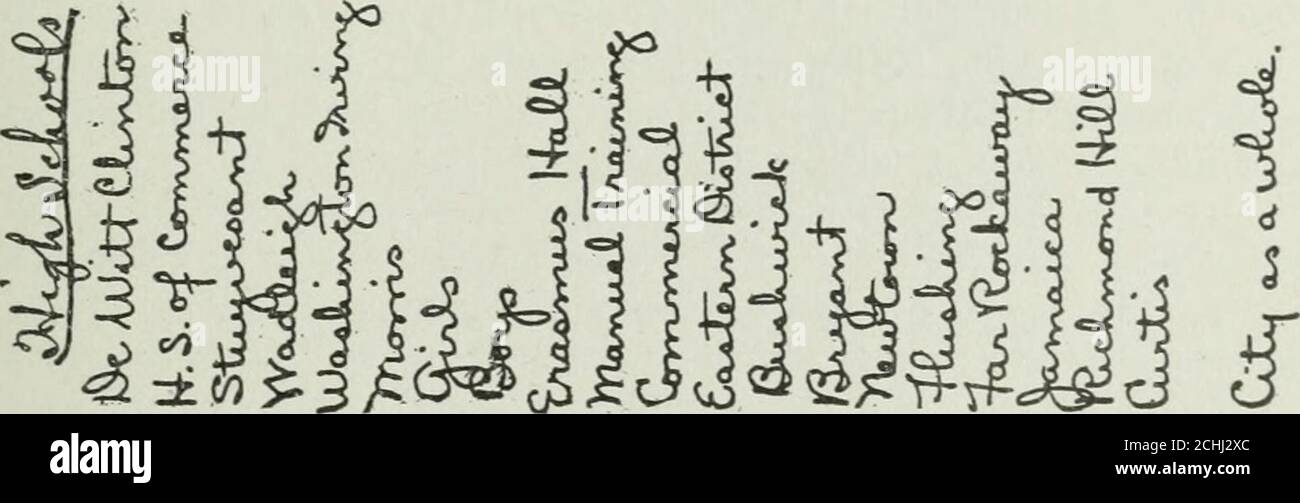 High Schools
De Witt Clinton
H.S. of Commerce
Stuyvesant
Wadleigh
Washington Irving
Morris
Girls
Boys
Erasmus Hall
Manual Training
Commercial
Eastern District
Bushwick
Bryant
Newtown
Flushing
Far Rockaway
Jamaica
Richmond Hill
Curtis
City as a whole.
alamy
alamy
Image ID: 2CHJ2XC
www.alamy.com